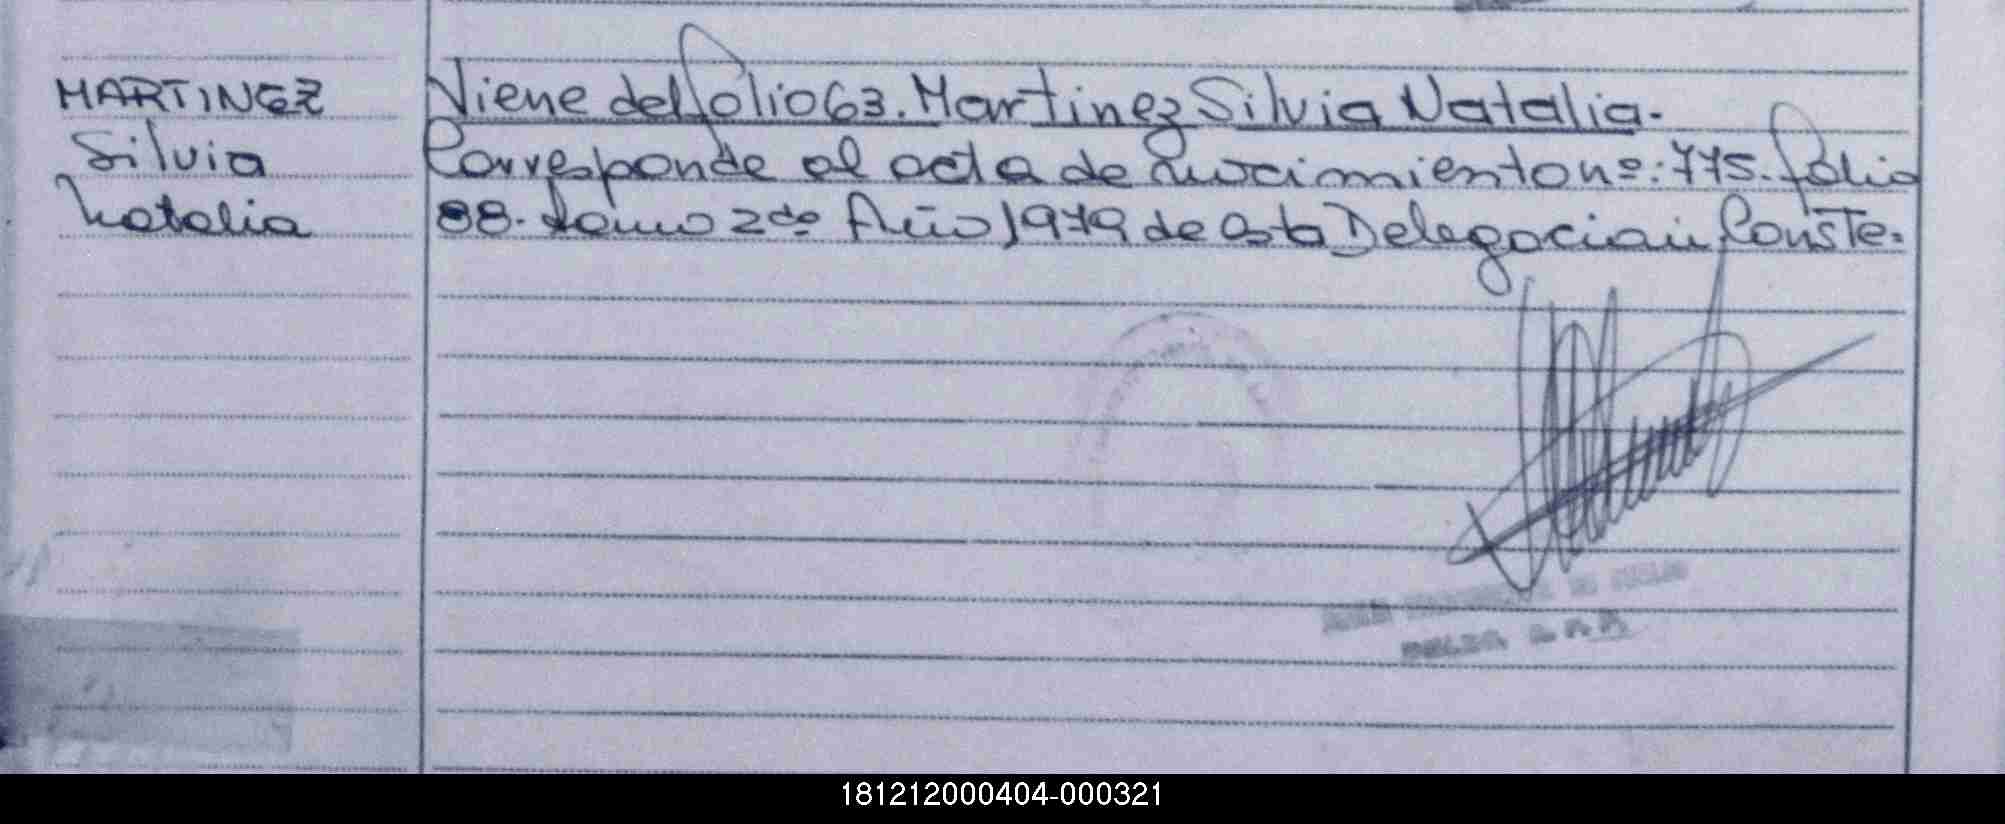 MARTINEZ
Silvia
Natalia
Viene del folio 63. Martinez Silvia Natalia.
Corresponde al acta de nacimiento nº: 775. folio
88. tomo 2do Año 1979 de esta Delegación Conste.
181212000404-000321